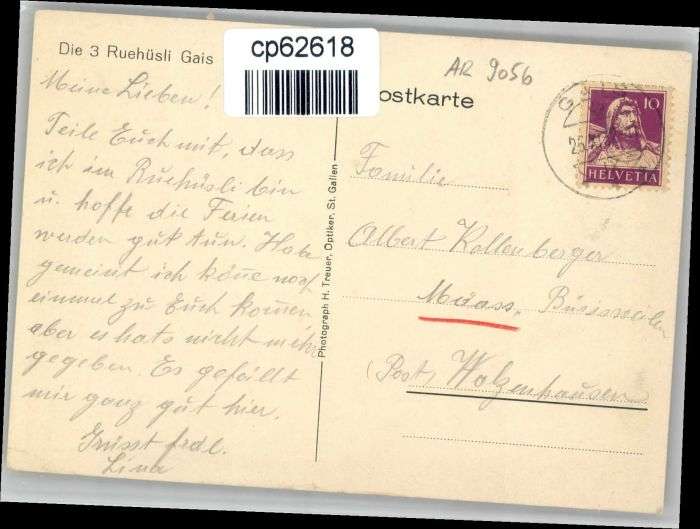 Die 3 Ruehüsli Gais
cp62618
AR 9056
Postkarte
10
HELVETIA
Meine Lieben!
Teile Euch mit, dass
ich im Ruehüsli bin
u. hoffe die Ferien
werden gut tun. Habe
gemeint ich köne noch
einmal zu Euch komen
aber es hats nicht mehr
gegeben. Es gefällt
mir ganz gut hier.
Grüsst frdl.
Lina
Photograph H. Treuer, Optiker, St. Gallen
Familie
Albert Kollenberger
Maass,
(Post) Walzenhausen